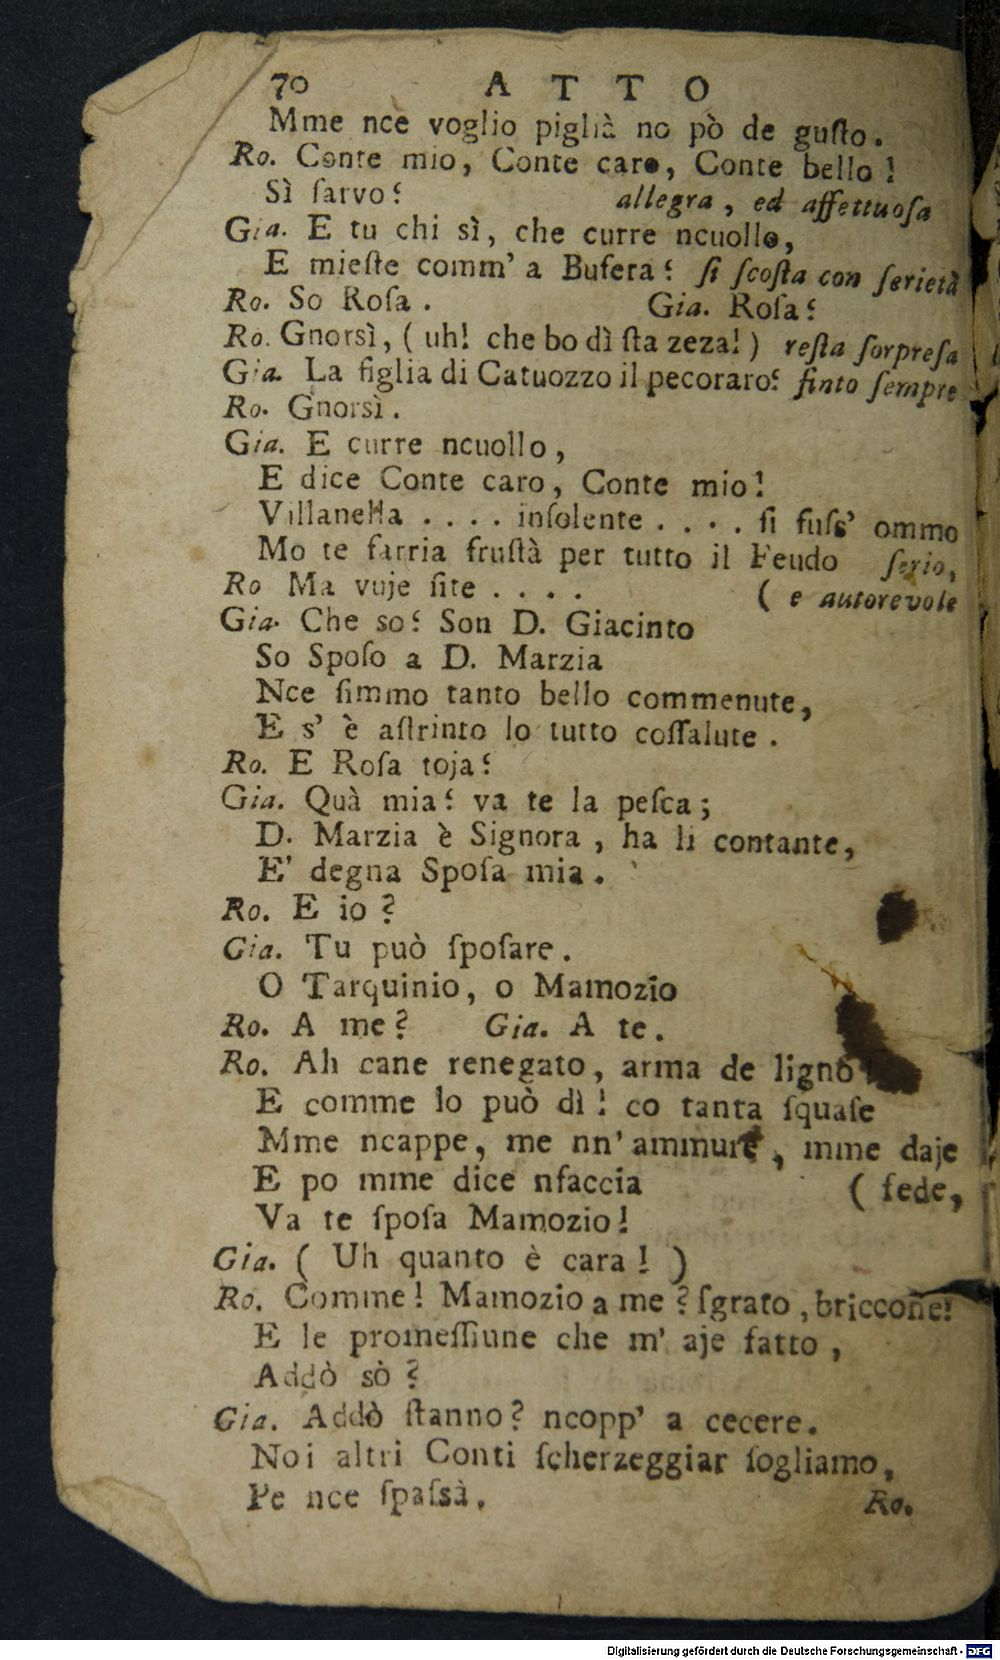 70 ATTO
Mme nce voglio piglià no pò de guſto.
Ro. Conte mio, Conte caro, Conte bello!
Sì ſarvo? allegra, ed affettuoſa
Gia. E tu chi sì, che curre ncuollo,
E mieſte comm' a Bufera? ſi ſcoſta con ſerietà
Ro. So Roſa. Gia. Roſa?
Ro. Gnorsì, (uh! che bo dì ſta zeza!) reſta ſorpreſa
Gia. La figlia di Catuozzo il pecoraro? finto ſempre
Ro. Gnorsì.
Gia. E curre ncuollo,
E dice Conte caro, Conte mio!
Villanella .... inſolente .... ſi fuſs' ommo
Mo te farria fruſtà per tutto il Feudo ſerio,
Ro Ma vuje ſite .... ( e autorevole
Gia. Che so? Son D. Giacinto
So Spoſo a D. Marzia
Nce ſimmo tanto bello commenute,
E s' è aſtrinto lo tutto coſſalute.
Ro. E Roſa toja?
Gia. Quà mia? va te la peſca;
D. Marzia è Signora, ha li contante,
E' degna Spoſa mia.
Ro. E io?
Gia. Tu può ſpoſare.
O Tarquinio, o Mamozio
Ro. A me? Gia. A te.
Ro. Ah cane renegato, arma de ligno
E comme lo può dì! co tanta ſquaſe
Mme ncappe, me nn' ammure, mme daje
E po mme dice nfaccia ( fede,
Va te ſpoſa Mamozio!
Gia. ( Uh quanto è cara! )
Ro. Comme! Mamozio a me? ſgrato, briccone!
E le promeſſiune che m' aje fatto,
Addò sò?
Gia. Addò ſtanno? ncopp' a cecere.
Noi altri Conti ſcherzeggiar ſogliamo,
Pe nce ſpaſsà. Ro.
Digitalisierung gefördert durch die Deutsche Forschungsgemeinschaft - DFG